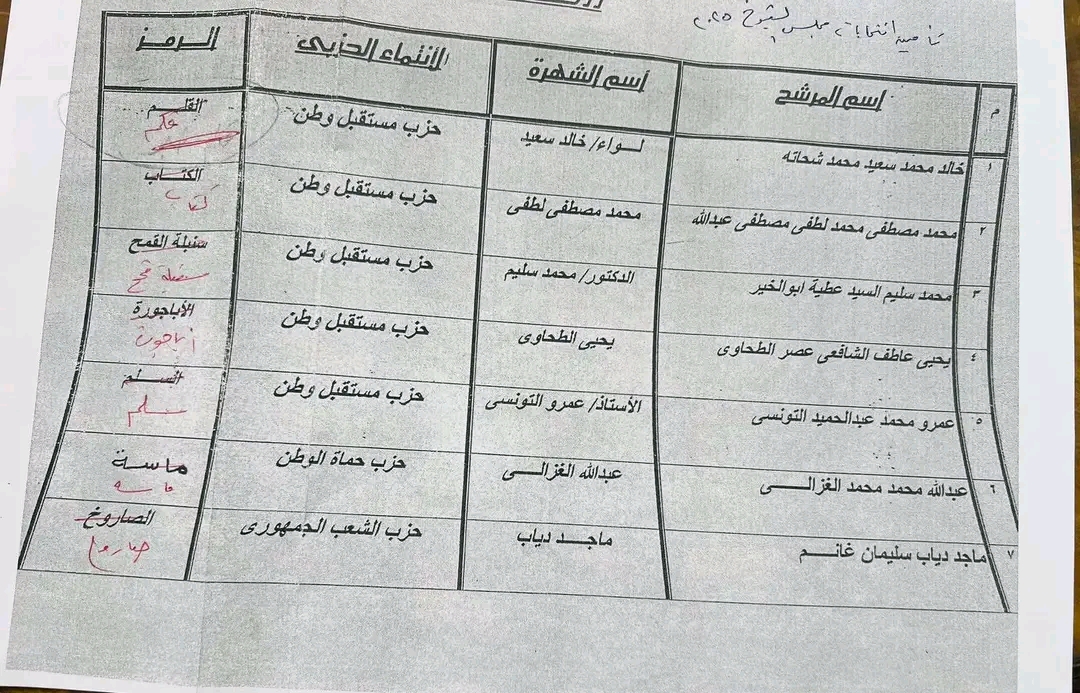 انتخابات مجلس الشيوخ ٢٠٢٥
م اسم المرشح أسم الشهرة الأنتماء الحزبى الرمز
١ خالد محمد سعيد محمد شحاته لـواء/ خالد سعيد حزب مستقبل وطن القلـم
٢ محمد مصطفى محمد لطفى مصطفى عبدالله محمد مصطفى لطفى حزب مستقبل وطن الكتاب
كتاب
٣ محمد سليم السيد عطية ابوالخير الدكتور/ محمد سليم حزب مستقبل وطن سنبلة القمح
سنبلة قمح
٤ يحيى عاطف الشافعى عصر الطحاوى يحيى الطحاوى حزب مستقبل وطن الأباجورة
أباجورة
٥ عمرو محمد عبدالحميد التونسى الأستاذ/ عمرو التونسى حزب مستقبل وطن السلـم
سلم
٦ عبدالله محمد محمد الغزالـى عبدالله الغزالـى حزب حماة الوطن ماسة
ماسه
٧ ماجد دياب سليمان غانـم ماجـد دياب حزب الشعب الجمهورى الصاروخ
صاروخ